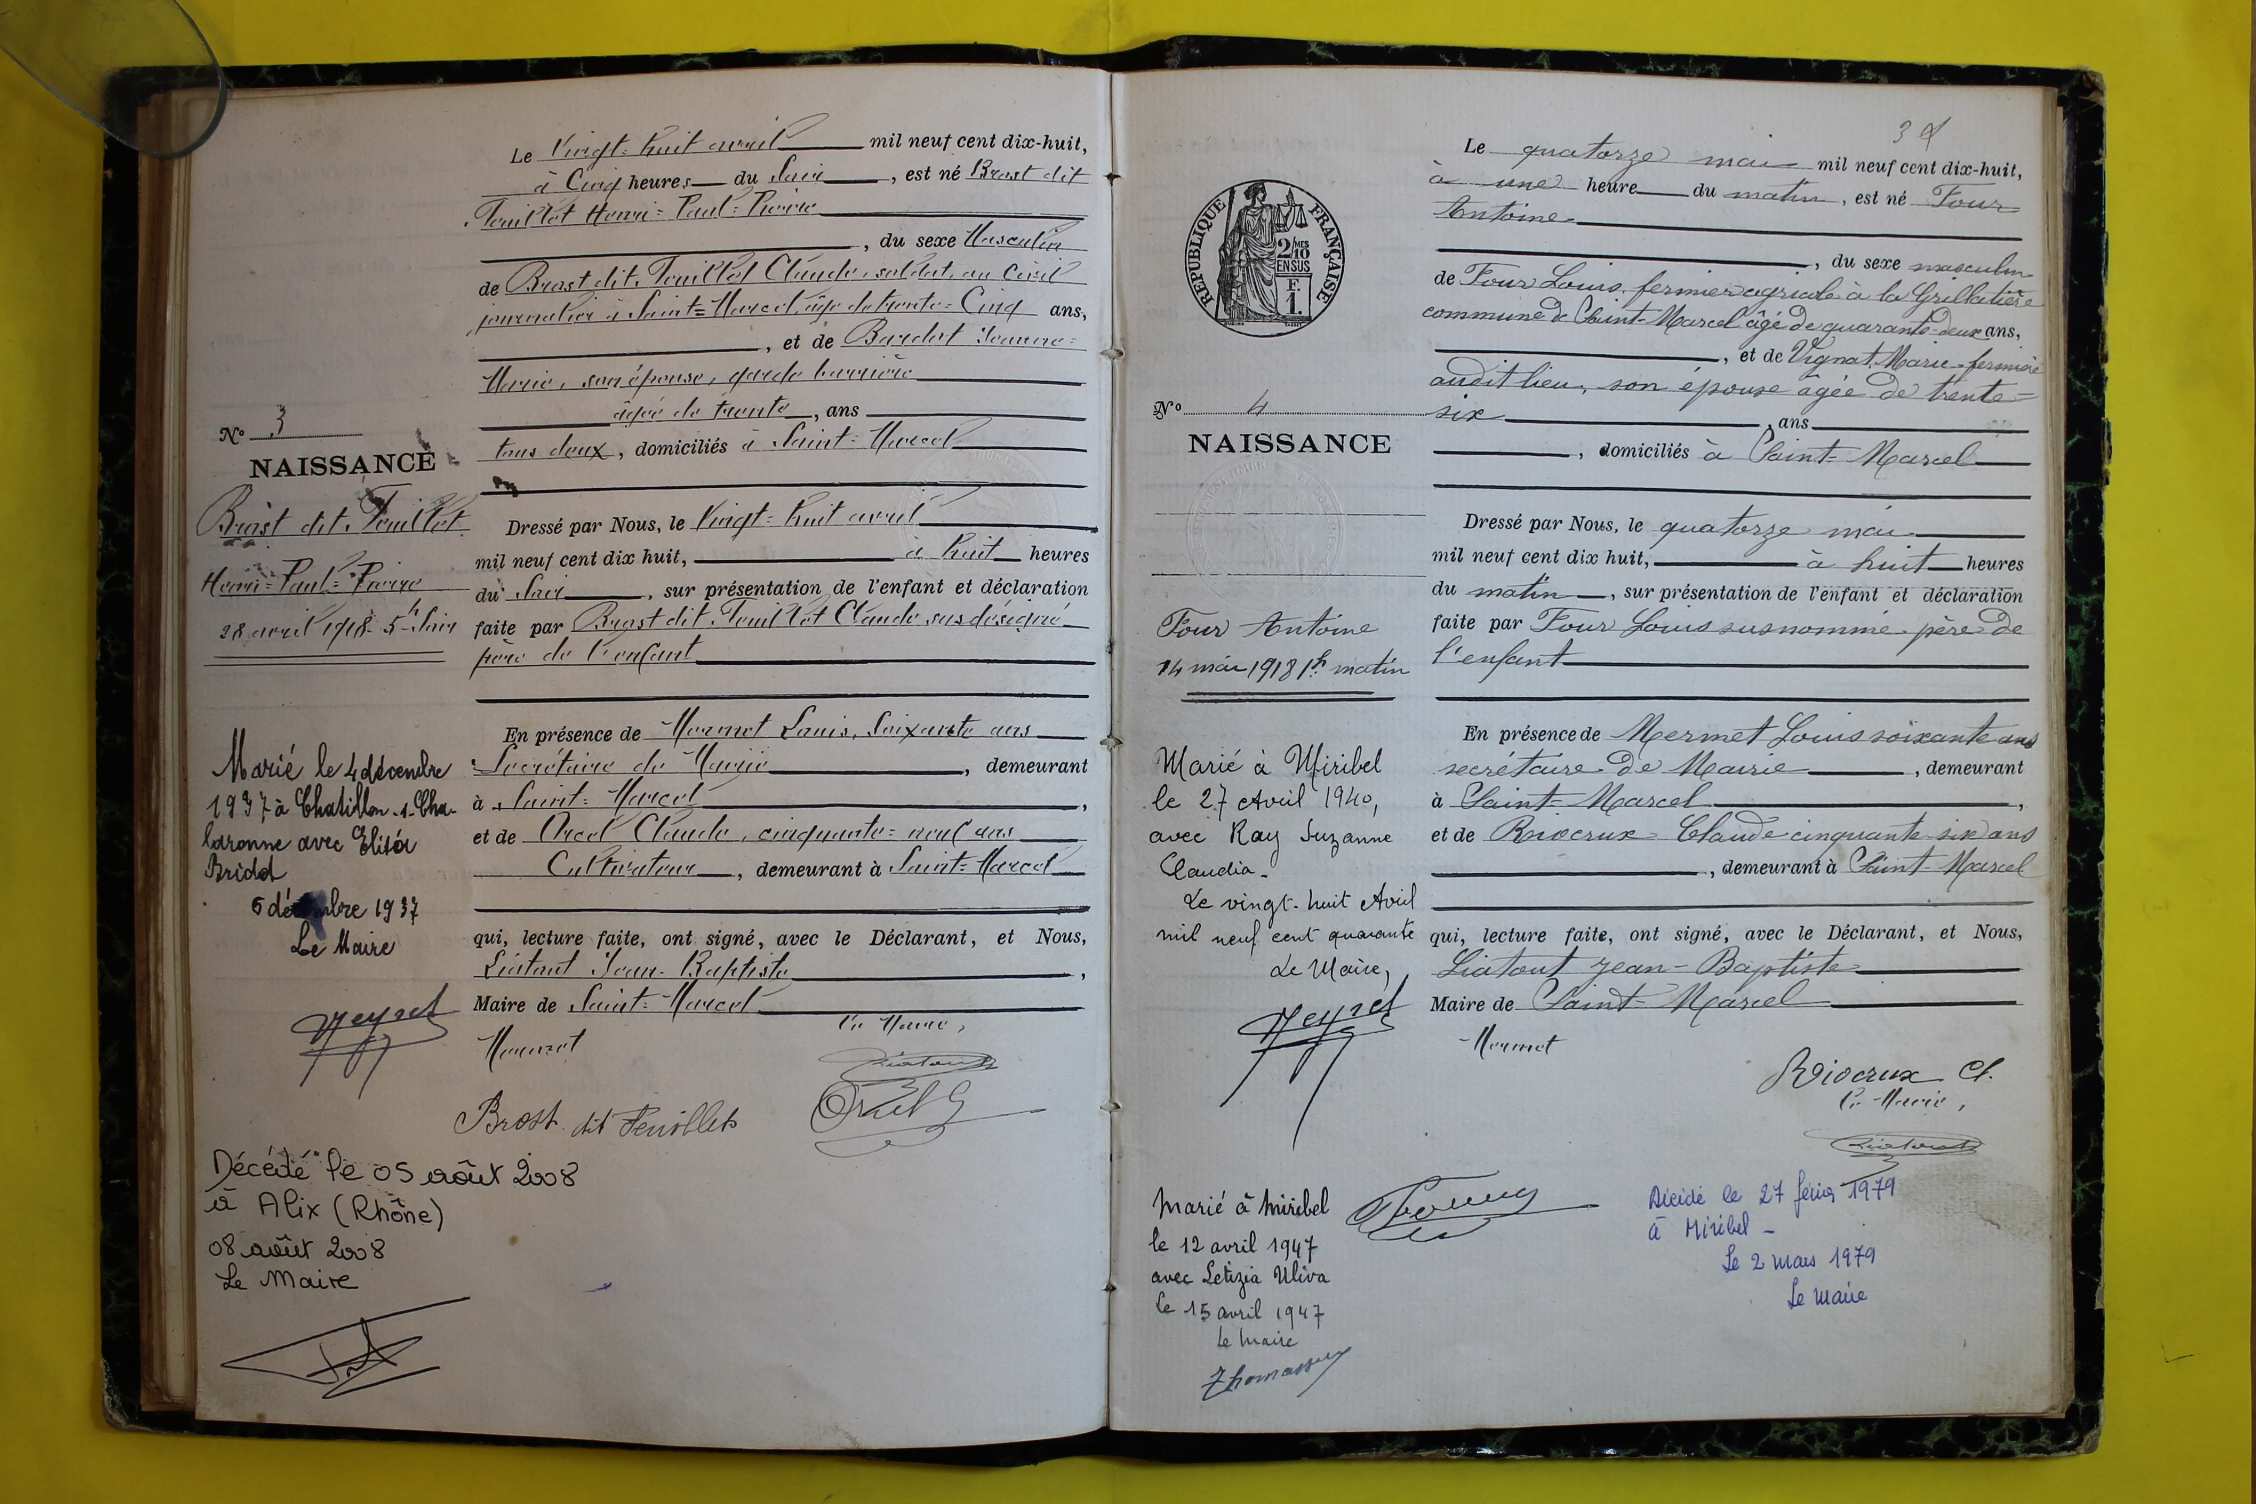 Le Vingt=huit avril mil neuf cent dix-huit,
à Cinq heures du Soir, est né Brost dit
Feuillet Henri=Paul=Pierre
, du sexe Masculin
de Brost dit Feuillet Claude, soldat, au Civil
journalier à Saint=Marcel, âgé de trente=Cinq ans,
, et de Bardet Jeanne=
Marie, son épouse, garde barrière
âgée de trente, ans
tous deux, domiciliés à Saint=Marcel
Dressé par Nous, le Vingt=huit avril
mil neuf cent dix huit, à huit heures
du Soir, sur présentation de l'enfant et déclaration
faite par Brost dit Feuillet Claude sus désigné
père de l'enfant
En présence de Mermet Louis, Soixante ans
Secrétaire de Mairie, demeurant
à Saint=Marcel,
et de Orcel Claude, cinquante=neuf ans
Cultivateur, demeurant à Saint=Marcel
qui, lecture faite, ont signé, avec le Déclarant, et Nous,
Liatout Jean-Baptiste,
Maire de Saint=Marcel
Le Maire,
Mermet
Liatout
Orcel C
Brost dit Feuillet
No 3
NAISSANCE
Brost dit Feuillet
Henri=Paul=Pierre
28 avril 1918 5h Soir
Marié le 4 décembre
1937 à Chatillon-s-Cha-
laronne avec Elisa
6 décembre 1937
Le Maire
Décédé le 05 août 2008
à Alix (Rhône)
08 août 2008
Le Maire
3
Le quatorze mai mil neuf cent dix-huit,
à une heure du matin, est né Four
Antoine
, du sexe masculin
de Four Louis, fermier agricole à la Grillatière
commune de Saint-Marcel âgé de quarante-deux ans,
, et de Vignat Marie fermière
audit lieu, son épouse âgée de trente=
six, ans
, domiciliés à Saint=Marcel
Dressé par Nous, le quatorze mai
mil neuf cent dix huit, à huit heures
du matin, sur présentation de l'enfant et déclaration
faite par Four Louis susnommé père de
l'enfant
En présence de Mermet Louis soixante ans
secrétaire de Mairie, demeurant
à Saint=Marcel,
et de Rivoerux Claude cinquante-six ans
, demeurant à Saint-Marcel
qui, lecture faite, ont signé, avec le Déclarant, et Nous,
Liatout Jean-Baptiste
Maire de Saint-Marcel
Mermet
Le Maire,
Liatout
RÉPUBLIQUE FRANÇAISE
2/10 MES
EN SUS
F.
1.
No 4
NAISSANCE
Four Antoine
14 mai 1918 1h matin
Marié à Miribel
le 27 Avril 1940,
avec Ray Suzanne
Claudia.
Le vingt-huit Avril
mil neuf cent quarante
Le Maire,
Marié à Miribel
le 12 avril 1947
avec Letizia Uliva
le 15 avril 1947
le Maire
Thomasson
Décédé le 27 février 1979
à Miribel -
Le 2 mars 1979
Le Maire